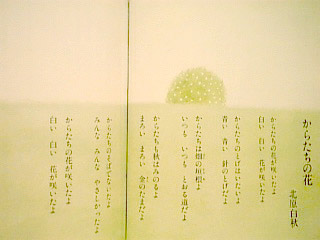 からたちの花
北原白秋
からたちの花が咲いたよ
白い 白い 花が咲いたよ
からたちのとげはいたいよ
青い 青い 針のとげだよ
からたちは畑の垣根よ
いつも いつも とおる道だよ
からたちも秋はみのるよ
まろい まろい 金のたまだよ
からたちのそばで泣いたよ
みんな みんな やさしかったよ
からたちの花が咲いたよ
白い 白い 花が咲いたよ